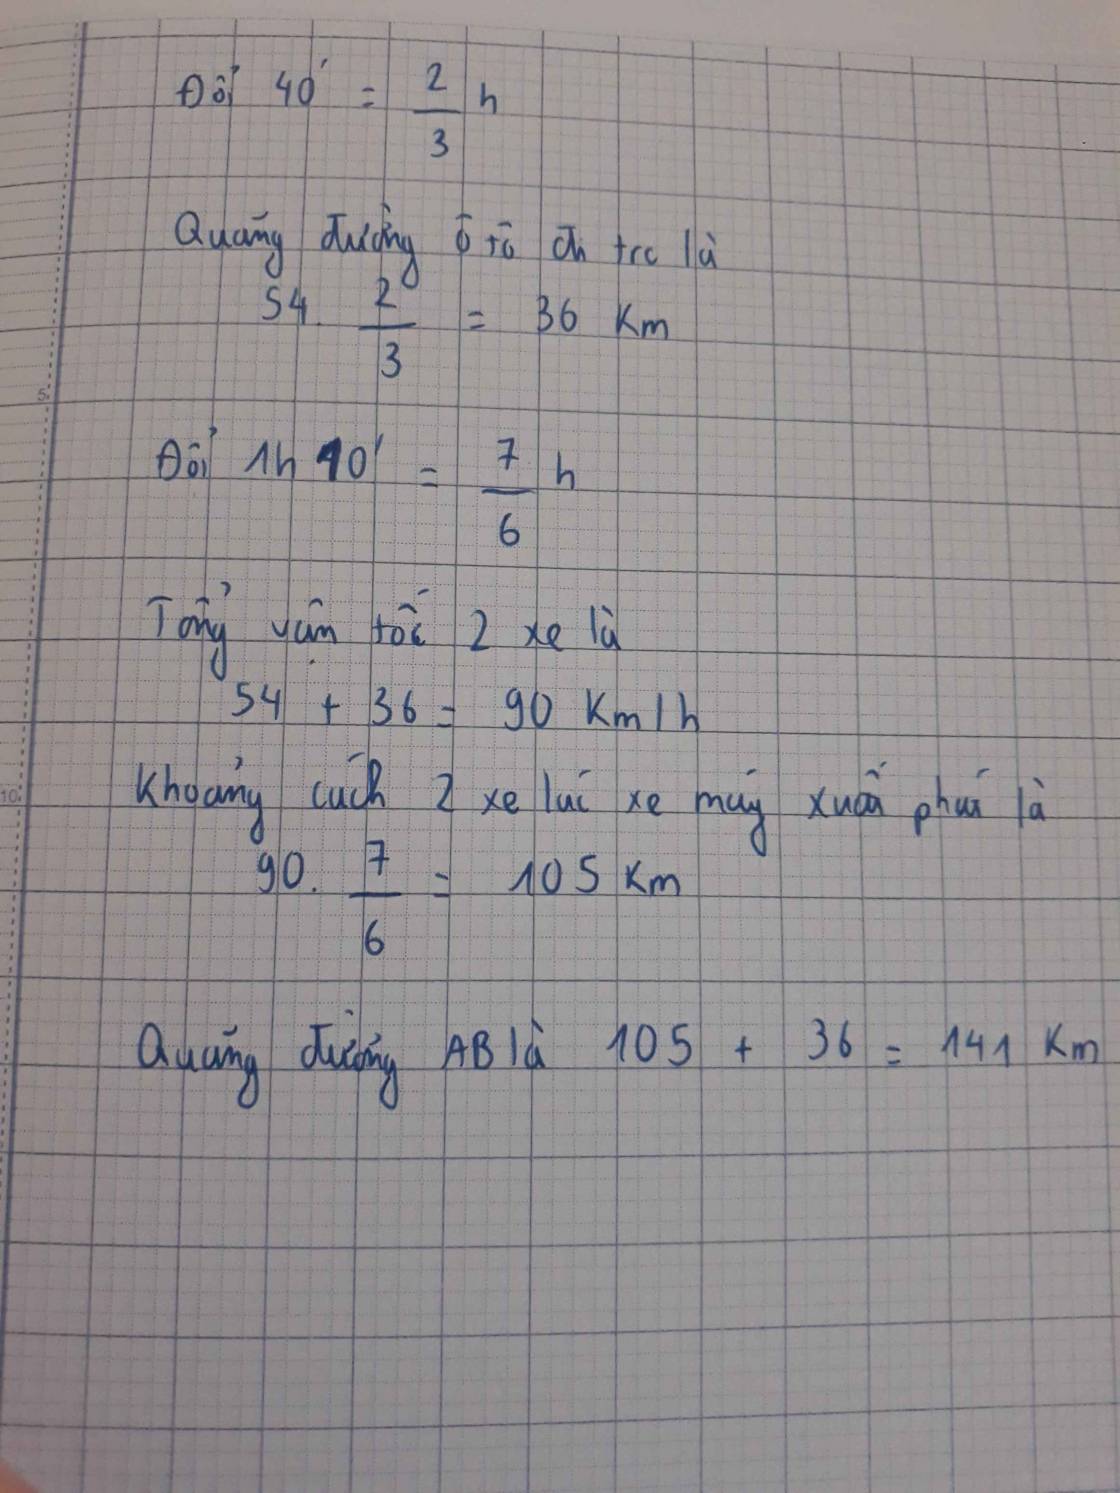 Đổi 40' = 2/3 h
Quãng đường ô tô đi trc là
54. 2/3 = 36 Km
5
Đổi 1h 10' = 7/6 h
Tổng vận tốc 2 xe là
54 + 36 = 90 Km/h
10
Khoảng cách 2 xe lúc xe máy xuất phát là
90. 7/6 = 105 Km
Quãng đường AB là 105 + 36 = 141 Km